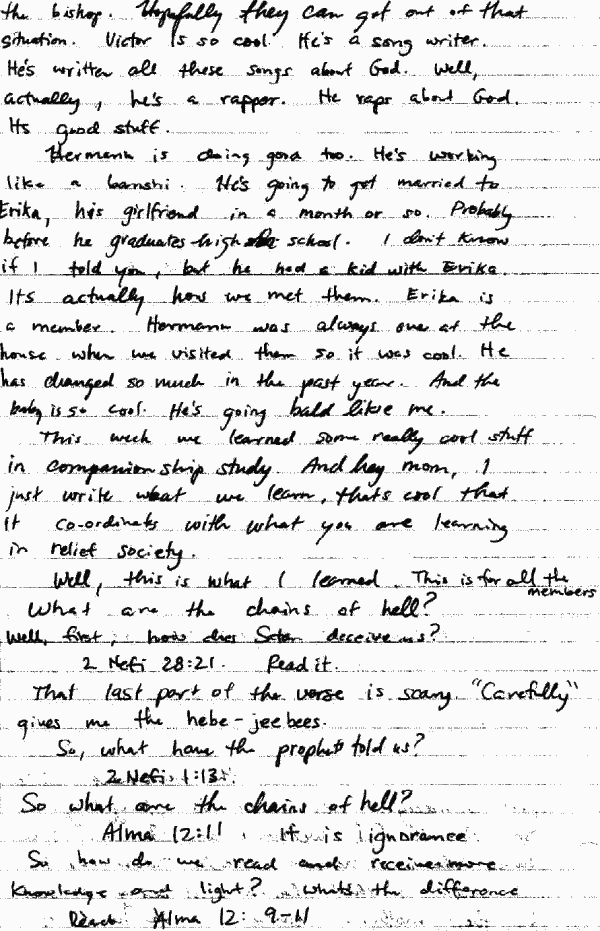 the bishop. Hopefully they can get out of that
situation. Victor is so cool. He's a song writer.
He's written all these songs about God. Well,
actually, he's a rapper. He raps about God.
Its good stuff.
Hermann is doing good too. He's working
like a banshi. He's going to get married to
Erika, his girlfriend in a month or so. Probably
before he graduates high school. I don't know
if I told you, but he had a kid with Erika.
Its actually how we met them. Erika is
a member. Hermann was always over at the
house when we visited them so it was cool. He
has changed so much in the past year. And the
baby is so cool. He's going bald like me.
This week we learned some really cool stuff
in companionship study. And hey mom, I
just write what we learn, thats cool that
it co-ordinates with what you are learning
in relief society.
Well, this is what I learned. This is for all the
members
What are the chains of hell?
Well, first, how does Satan deceive us?
2 Nefi 28:21. Read it.
That last part of the verse is scary "Carefully"
gives me the hebe-jeebees.
So, what have the prophets told us?
2 Nefi 1:13.
So what are the chains of hell?
Alma 12:11 It is ignorance
So how do we read and receive more
knowledge and light? Whats the difference
Read Alma 12: 9-11